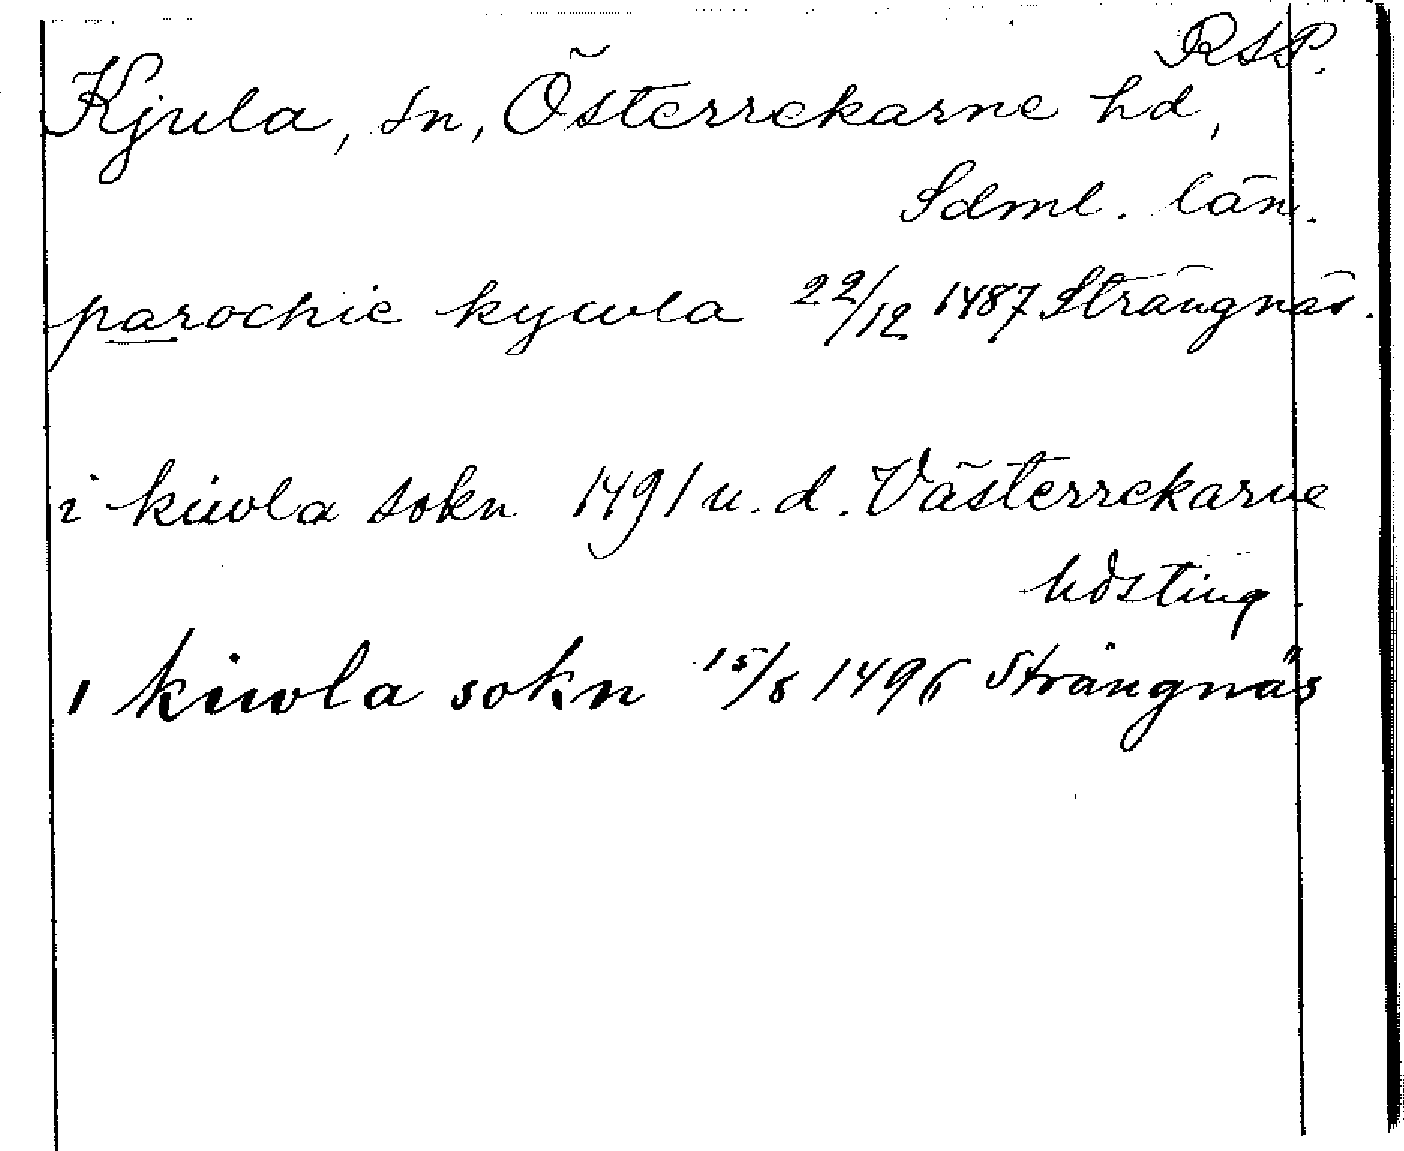 RSP.
Kjula, sn, Österrekarne hd,
Sdml. län.
parochie kywla 22/12 1487 Strängnäs.
i kiwla sokn 1491 u. d. Västerrekarne
hdsting.
i kiwla sokn 15/8 1496 Strängnäs